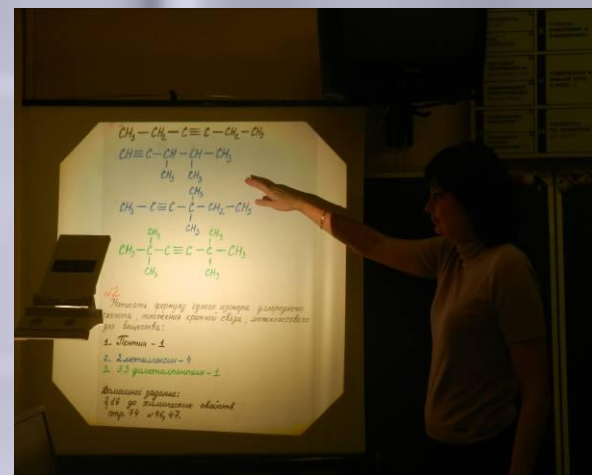 CH₃—CH₂—C≡C—CH₂—CH₃
CH≡C—CH—CH—CH₃
CH₃ CH₃
CH₃
CH₃—C≡C—C—CH₂—CH₃
CH₃
CH₃ CH₃
CH₃—C—C≡C—C—CH₃
CH₃ CH₃
№2.
Написать формулу одного изомера углеродного
скелета, положения кратной связи, межклассового
для вещества:
1. Пентин-1
2. 2 метилгексин-4
3. 3,3 диметилпентин-1
Домашнее задание:
§16 до химических свойств
стр. 74 №46, 47.